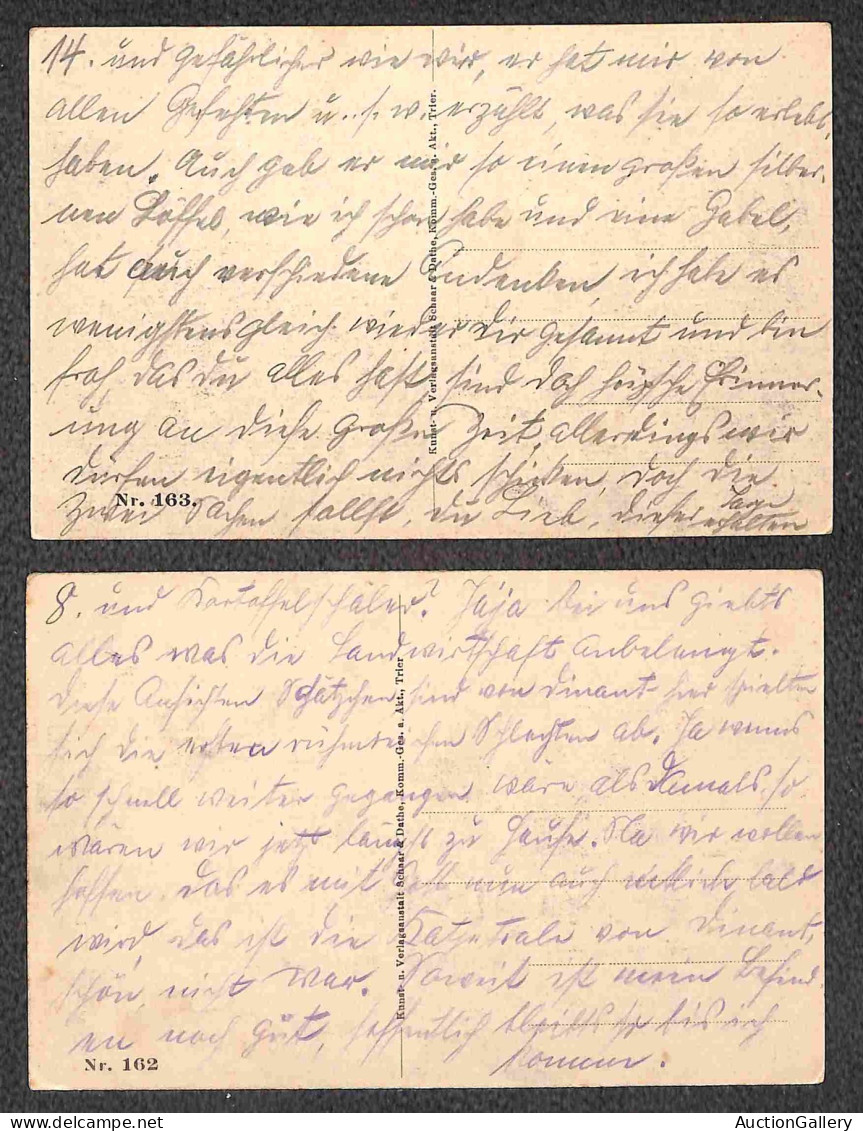 14. und gefährlicher wie wir, er hat mir von
allen Gefechten u. s. w. erzählt, was sie so erlebt
haben. Auch gab er mir so einen großen silber-
nen Löffel, wie ich schon habe und eine Gabel,
hat auch verschiedene Andenken, ich habe es
wenigstens gleich wieder dir gesannt und bin
froh, das du alles hast, sind doch hüpsche Erinner-
ung an diese große Zeit, allerdings wir
dürfen eigentlich nichts schicken, doch die
zwei Sachen sollst, du Lieb, dieser Tage
erhalten
Kunst- u. Verlagsanstalt Schaar & Dathe, Komm.-Ges. a. Akt., Trier.
Nr. 163.
8. und Kartoffelschäler? Jaja bei uns giebts
alles was die Landwirtschaft anbelangt.
Diese Ansichten Schätzchen sind von Dinant hier spielten
sich die ersten ruhmreichen Schlachten ab. Ja wenns
so schnell weiter gegangen wäre, als damals, so
wären wir jetzt längst zu Hause. Na wir wollen
hoffen, das es mit Gott nun auch bald
wird, das ist die Katetrale von Dinant,
schön, nicht war. Soweit ist mein Befind
en noch gut, hoffentlich bleibts so bis ich
komme.
Kunst- u. Verlagsanstalt Schaar & Dathe, Komm.-Ges. a. Akt., Trier
Nr. 162
AuctionGallery